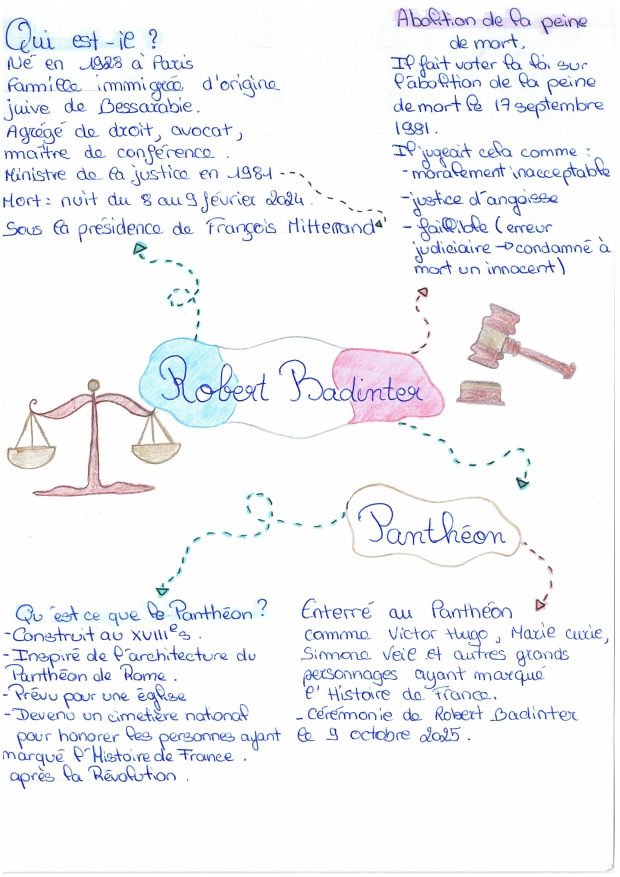 Qui est-il ?
Né en 1928 à Paris
Famille immigrée d'origine
juive de Bessarabie.
Agrégé de droit, avocat,
maître de conférence.
Ministre de la justice en 1981
Mort : nuit du 8 au 9 février 2024.
Sous la présidence de François Mitterrand
Abolition de la peine
de mort.
Il fait voter la loi sur
l'abolition de la peine
de mort le 17 septembre
1981.
Il jugeait cela comme :
- moralement inacceptable
- justice d'angoisse
- faillible (erreur
judiciaire → condamné à
mort un innocent)
Robert Badinter
Panthéon
Qu'est ce que le Panthéon ?
- Construit au XVIIIe s.
- Inspiré de l'architecture du
Panthéon de Rome.
- Prévu pour une église
- Devenu un cimetière national
pour honorer les personnes ayant
marqué l'Histoire de France.
après la Révolution.
Enterré au Panthéon
comme Victor Hugo, Marie curie,
Simmone Veil et autres grands
personnages ayant marqué
l'Histoire de France.
- Cérémonie de Robert Badinter
le 9 octobre 2025.